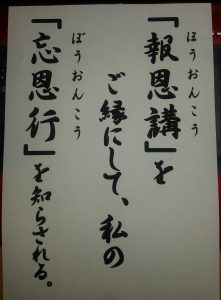 ほうおんこう
『報恩講』を
ご縁にして、私の
ぼうおんこう
『忘恩行』を知らされる。